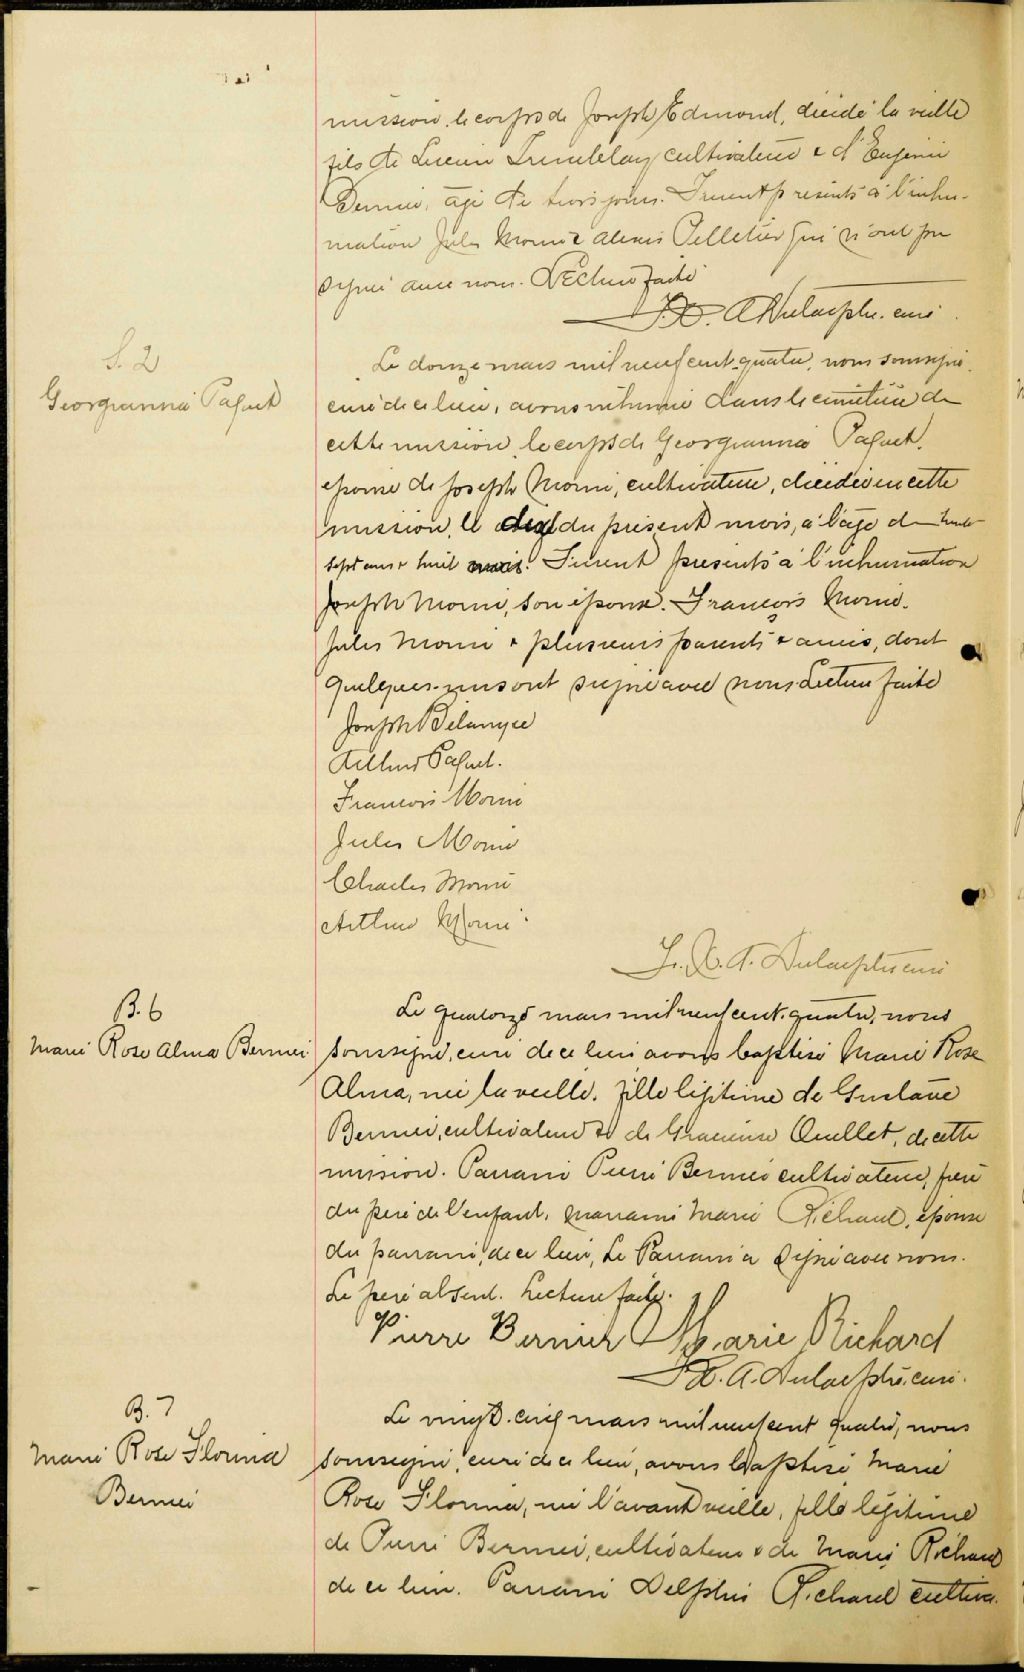 mission, le corps de Joseph Edmond, décédé la veille
fils de Lucien Tremblay cultivateur & d'Eugénie
Bernier, âgé de trois jours. Furent présents à l'inhu-
mation Jules Morin & Alexis Pelletier qui n'ont pu
signer avec nous. Lecture faite
F. X. A. curé.
S. 2
Georgianna Paquet
Le douze mars mil neuf cent quatre, nous soussigné
curé de ce lieu, avons inhumé dans le cimetière de
cette mission, le corps de Georgianna Paquet,
épouse de Joseph Morin, cultivateur, décédée en cette
mission, le dix du présent mois, à l'âge de trente
sept ans & huit mois. Furent présents à l'inhumation
Joseph Morin, son époux. François Morin.
Jules Morin & plusieurs parents & amis, dont
quelques-uns ont signé avec nous Lecture faite
Joseph Bélanger
Arthur Paquet.
François Morin
Jules Morin
Charles Morin
Arthur Morin
F. X. A. curé
B. 6
Marie Rose Alma Bernier
Le quatorze mars mil neuf cent quatre, nous
soussigné, curé de ce lieu avons baptisé Marie Rose
Alma, née la veille, fille légitime de Gustave
Bernier, cultivateur & de Gracieuse Ouellet, de cette
mission. Parrain Pierre Bernier cultivateur, frère
du père de l'enfant, marraine Marie Richard, épouse
du parrain, de ce lieu, Le Parrain a signé avec nous.
Le père absent. Lecture faite.
Pierre Bernier Marie Richard
F. X. A. curé.
B. 7
Marie Rose Florida
Bernier
Le vingt-cinq mars mil neuf cent quatre, nous
soussigné, curé de ce lieu, avons baptisé Marie
Rose Florida, née l'avant veille, fille légitime
de Pierre Bernier, cultivateur & de Marie Richard
de ce lieu. Parrain Delphis Richard cultiva-